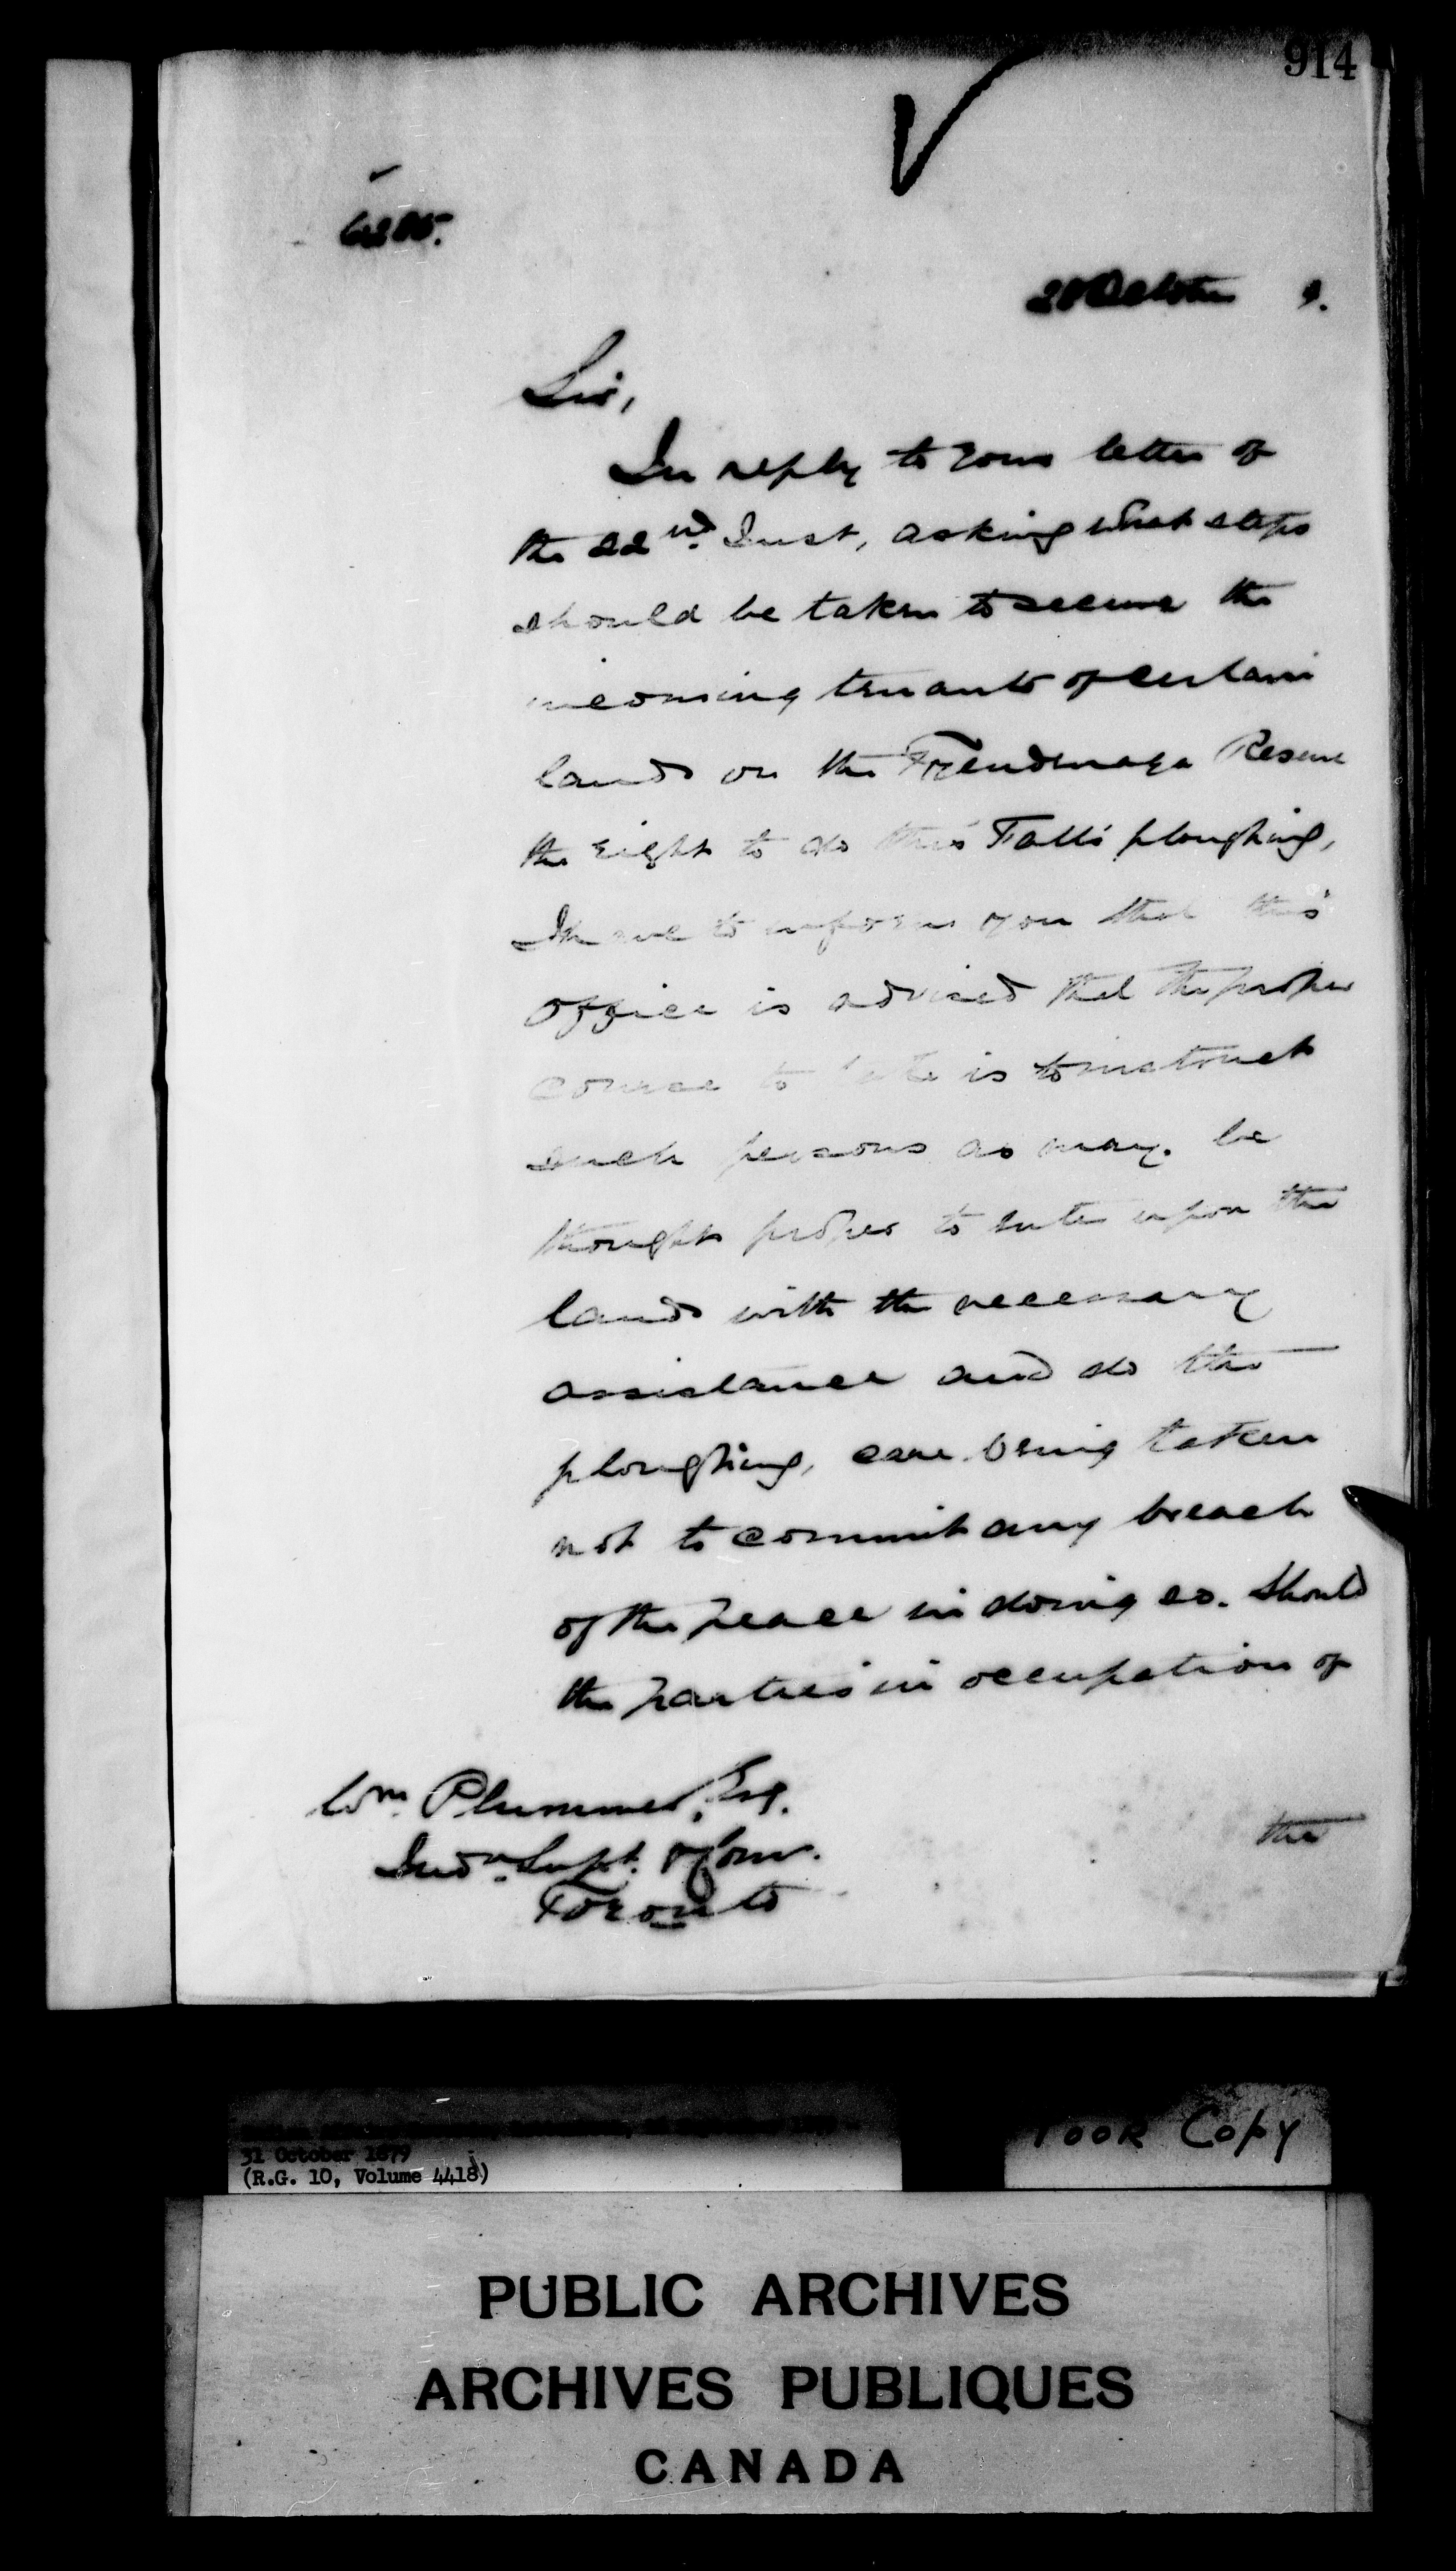 914
28 October 9.
Sir,
In reply to your letter of
the 22nd Inst, asking what steps
should be taken to secure the
incoming tenants of certain
lands on the Tyendinaga Reserve
the right to do this Fall's ploughing,
I have to inform you that this
Office is advised that the proper
course to take is to instruct
such persons as may be
thought proper to enter upon the
lands with the necessary
assistance and do the
ploughing, care being taken
not to commit any breach
of the peace in doing so. Should
the parties in occupation of
the
Wm. Plummer, Esq.
Indn. Supt. & Comr.
Toronto
31 October 1879
(R.G. 10, Volume 4418)
POOR COPY
PUBLIC ARCHIVES
ARCHIVES PUBLIQUES
CANADA